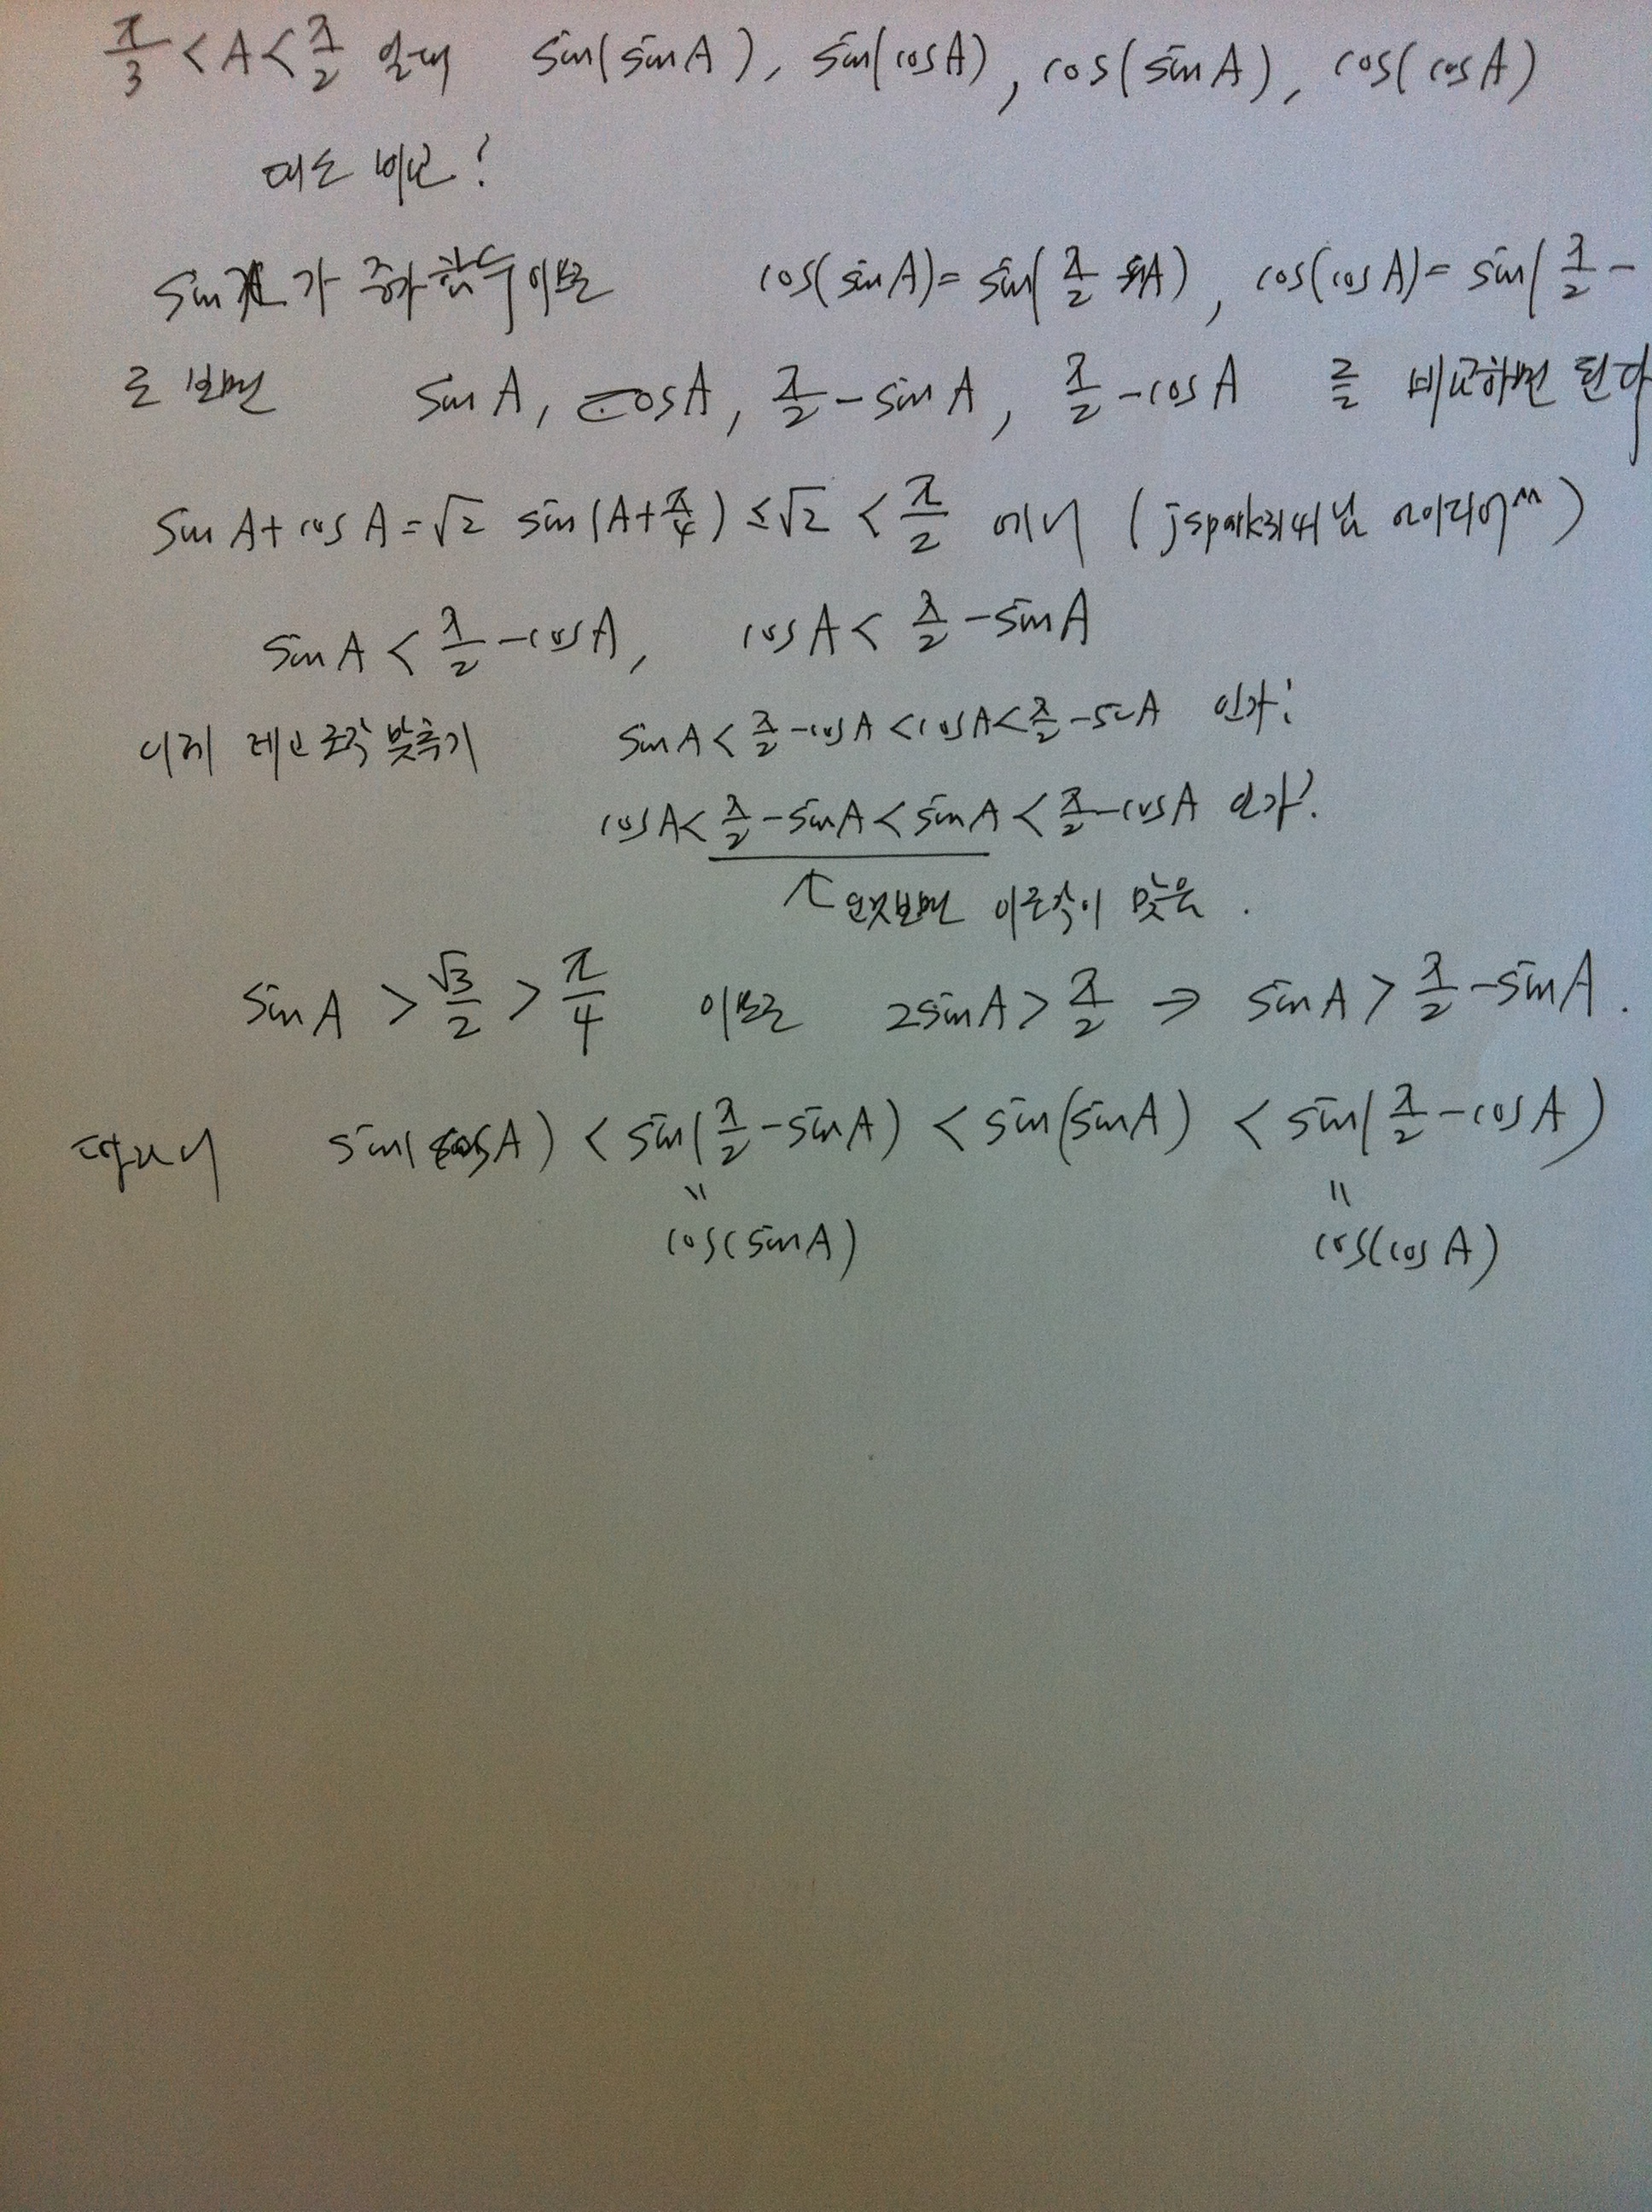 π/3 < A < π/2 일때 sin(sinA), sin(cosA), cos(sinA), cos(cosA)
대소 비교?
sin 가 증가함수이므로 cos(sinA) = sin(π/2 A), cos(cosA) = sin(π/2 -
로 보면 sinA, cosA, π/2 - sinA, π/2 - cosA 를 비교하면 된다
sinA + cosA = √2 sin(A + π/4) ≤ √2 < π/2 에서 (jspark 님 아이디어^^)
sinA < π/2 - cosA, cosA < π/2 - sinA
이제 레고 조각 맞추기 sinA < π/2 - cosA < cosA < π/2 - sinA 인가?
cosA < π/2 - sinA < sinA < π/2 - cosA 인가?
↑ 언뜻보면 이조각이 맞음.
sinA > √3/2 > π/4 이므로 2sinA > π/2 ⇒ sinA > π/2 - sinA.
따라서 sin(cosA) < sin(π/2 - sinA) < sin(sinA) < sin(π/2 - cosA)
= =
cos(sinA) cos(cosA)